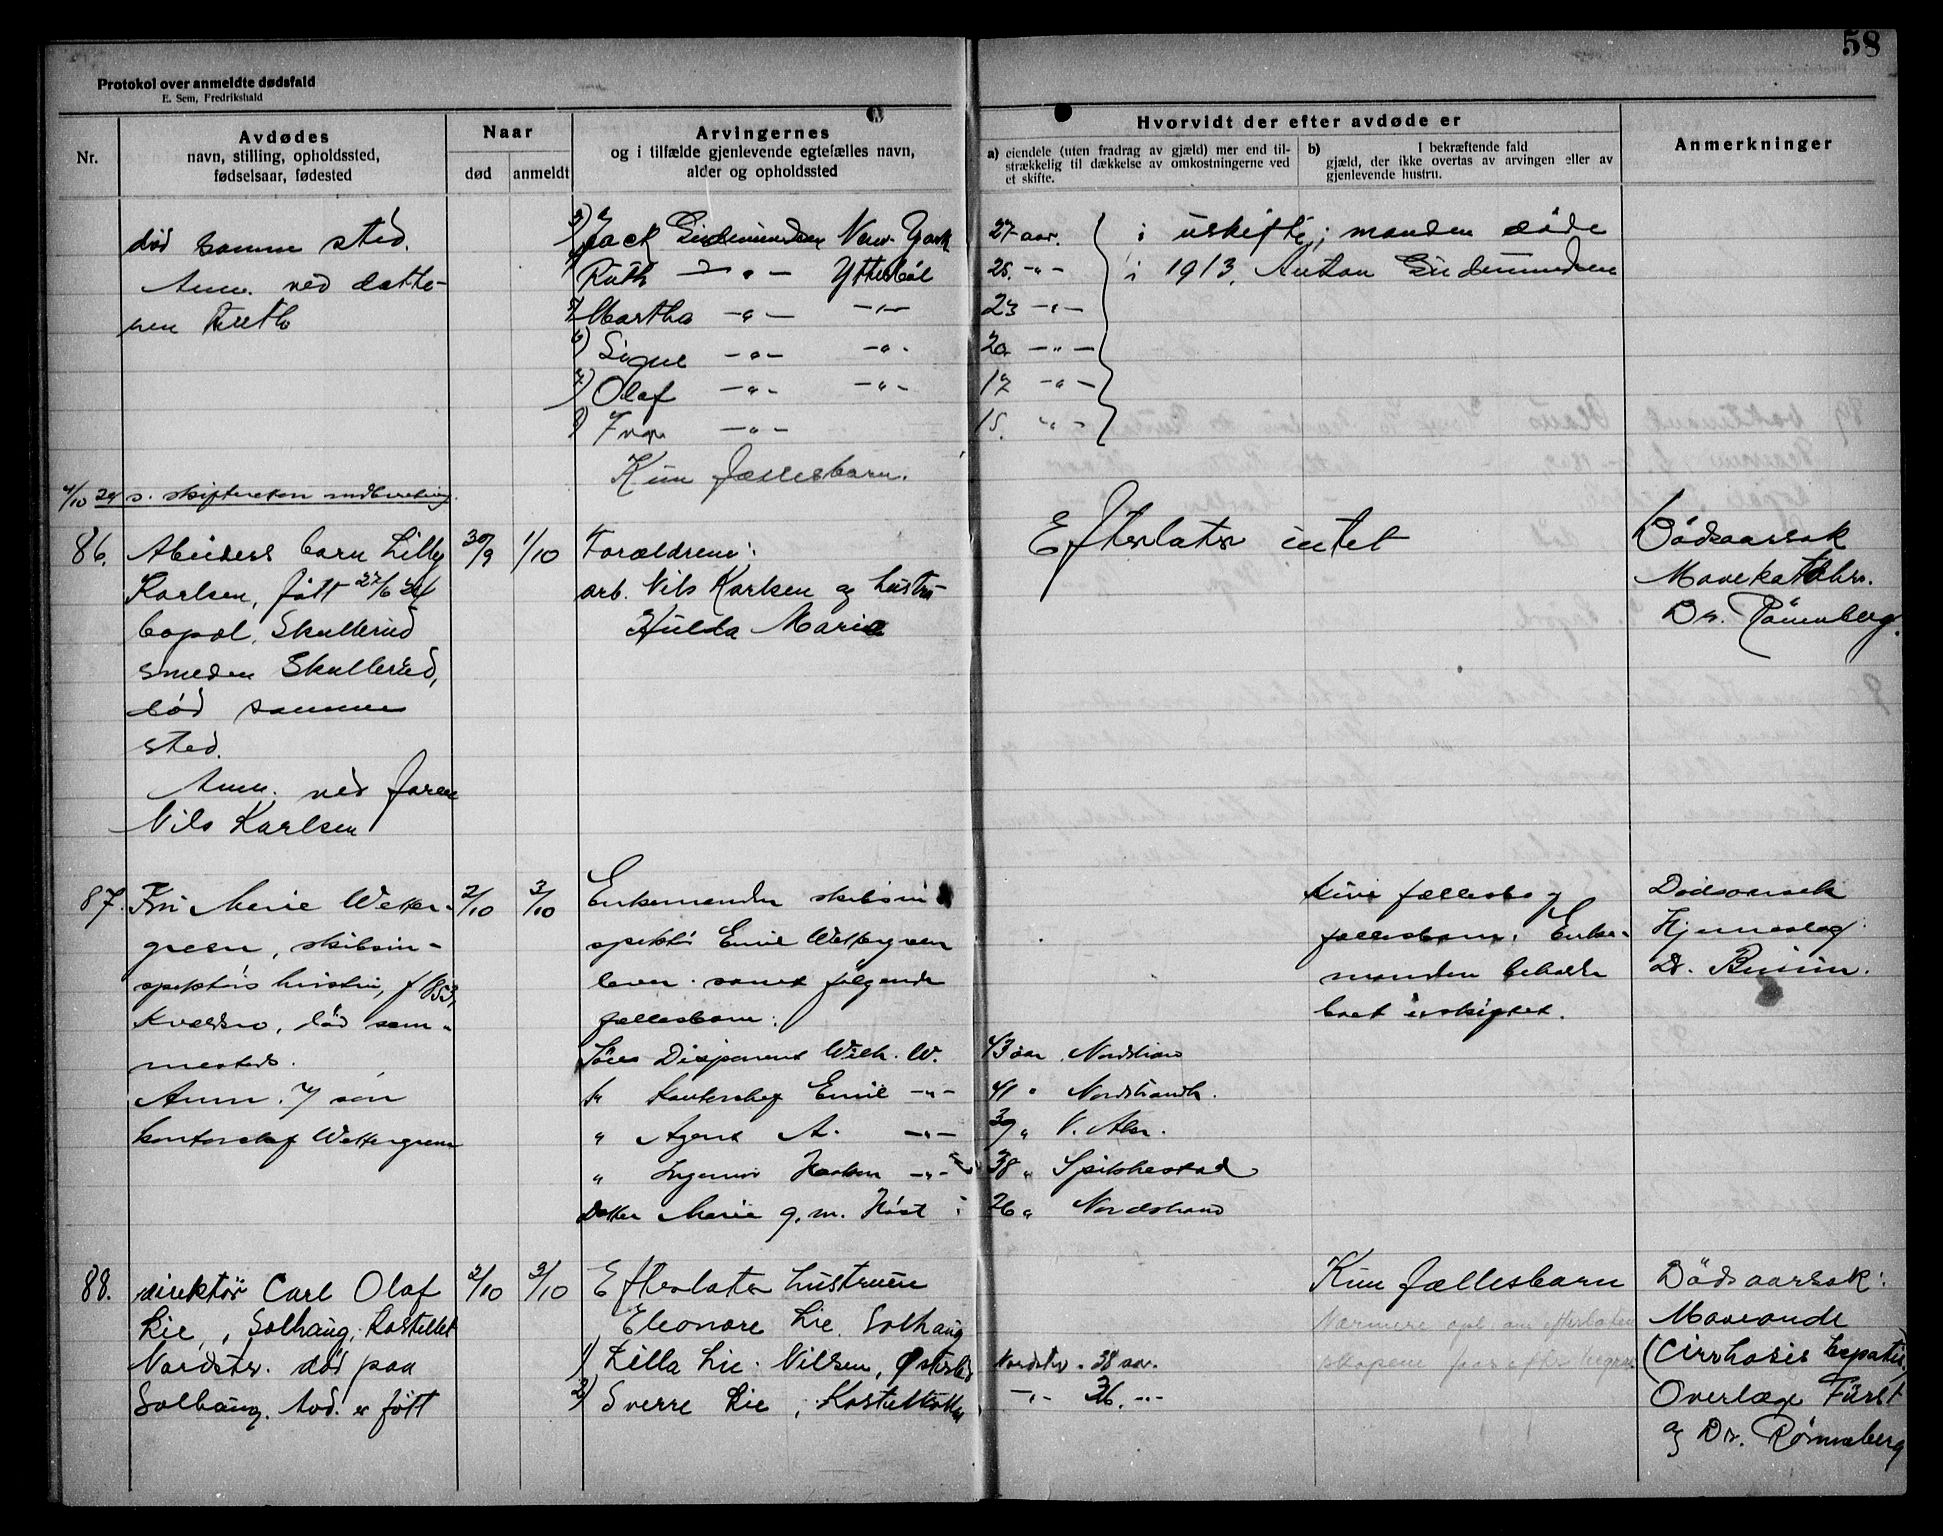 58
Protokol over anmeldte dødsfald
E. Sem, Fredrikshald
Nr.
Avdødes
navn, stilling, opholdssted,
fødselsaar, fødested
Naar
død
anmeldt
Arvingernes
og i tilfælde gjenlevende egtefælles navn,
alder og opholdssted
Hvorvidt der efter avdøde er
a) eiendele (uten fradrag av gjæld) mer end til-
strækkelig til dækkelse av omkostningerne ved
et skifte.
b) I bekræftende fald
gjæld, der ikke overtas av arvingen eller av
gjenlevende hustru.
Anmerkninger
død samme sted.
Anm. ved datte-
ren Ruth
3) Jack Gudmundsen New-York 27 aar.
Ruth -"- Ytterbøl 25. -"-
5) Martha -"- -"- 23 -"-
6) Signe -"- -"- 20 -"-
7) Olaf -"- -"- 17 -"-
Ivar -"- 15. -"-
Kun fællesbarn.
i uskifte; manden døde
i 1913. Anton Gudmundsen
4/10 24 s. skifteretten indberetning.
86. 30/9 1/10
Arbeiders barn Lilly
Karlsen, født 27/6 24
bopæl, Skullerud
smeden Skullerud,
død samme
sted.
Anm. ved faren
Nils Karlsen
Forældrene:
arb. Nils Karlsen og hustru
Hulda Marie
Efterlater intet
Dødsaarsak
Mavekatahr.
Dr. Rønneberg.
87. 2/10 3/10
Fru Marie Wetter-
green, skibsin-
spektørs hustru, f 853,
død sam-
mesteds.
Anm. v/ søn
kontorchef Wettergreen
Enkemanden skibsin
spektør Emil Wettergreen
lever samt følgende
fællesbarn:
Søn Disponent Wilh. W. 43 aar Nordstrand
" Kontorchef Emil -"- 41 " Nordstrandh.
" Agent A. -"- 39 " V. Aker.
" Ingeniør Haakon -"- 38 " Spikkestad
Datter Marie g. m. Høst 26 " Nordstrand
kun fællesbo og
fællesbarn. Enke-
manden beholder
boet uskiftet.
Dødsaarsak
Hjerneslag
Dr.
88. 2/10 3/10
direktør Carl Olaf
Lie, Solhaug, Kastellet
Nordstr. død paa
Solhaug. Avd. er født
Efterlater hustruen
Eleonore Lie. Solhaug
1) Lilla Lie-Nilsen, Nordstr. 38 aar.
2) Sverre Lie, -"- 36. -"-
Kun fællesbarn
Nærmere opl. om efterlaten
skapene
Dødsaarsak:
Maveonde
(Cirrhosis hepatis)
Overlæge Fürst
og Dr. Rønneberg